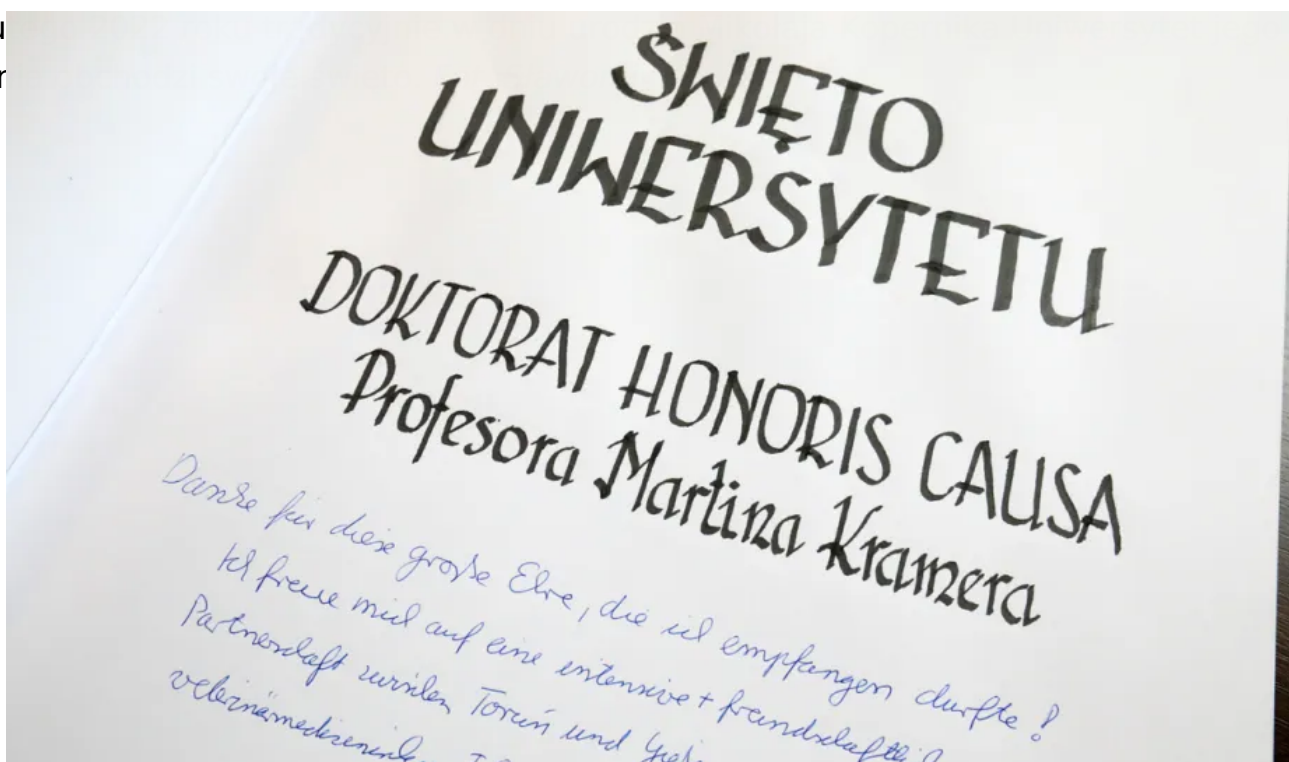 ŚWIĘTO
UNIWERSYTETU
DOKTORAT HONORIS CAUSA
Profesora Martina Kramera
Danke für diese große Ehre, die ich empfangen durfte!
Ich freue mich auf eine intensive + freundschaftli
Partnerschaft zwischen Toruń und Gieß
veterinärmedizinisch